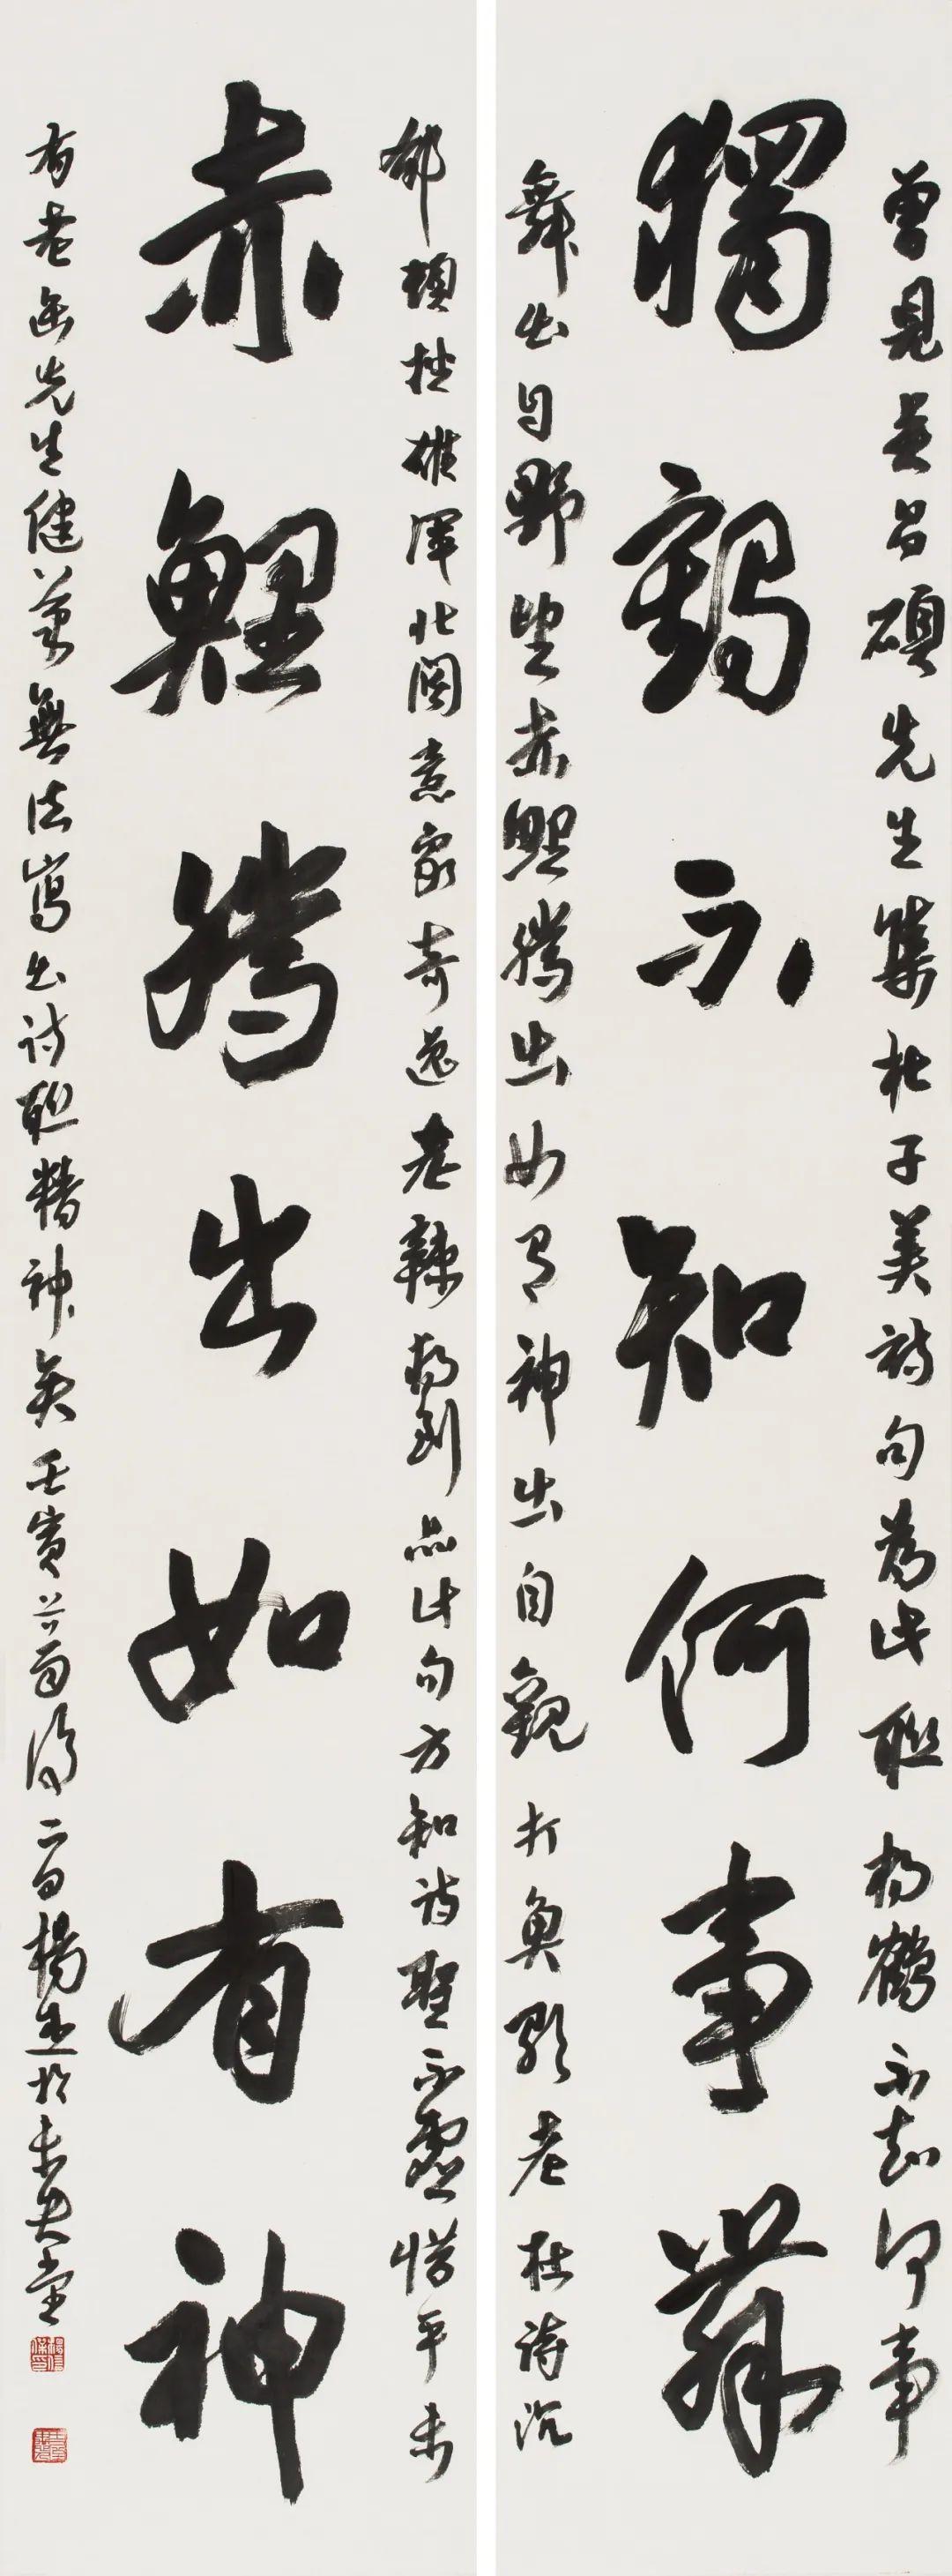 曾見吴昌碩先生集杜子美詩句為此联獨鶴不知何事
獨鶴不知何事舞
舞出自野望赤鯉騰出如有神出自觀打魚歌老杜詩沉
郁頓挫雄渾壯闊意象奇逸老辣獨到品此句方知詩聖不虚惜乎未
赤鯉騰出如有神
有老缶先生健筆無法寫出詩联精神矣壬寅後二日楊於未央堂